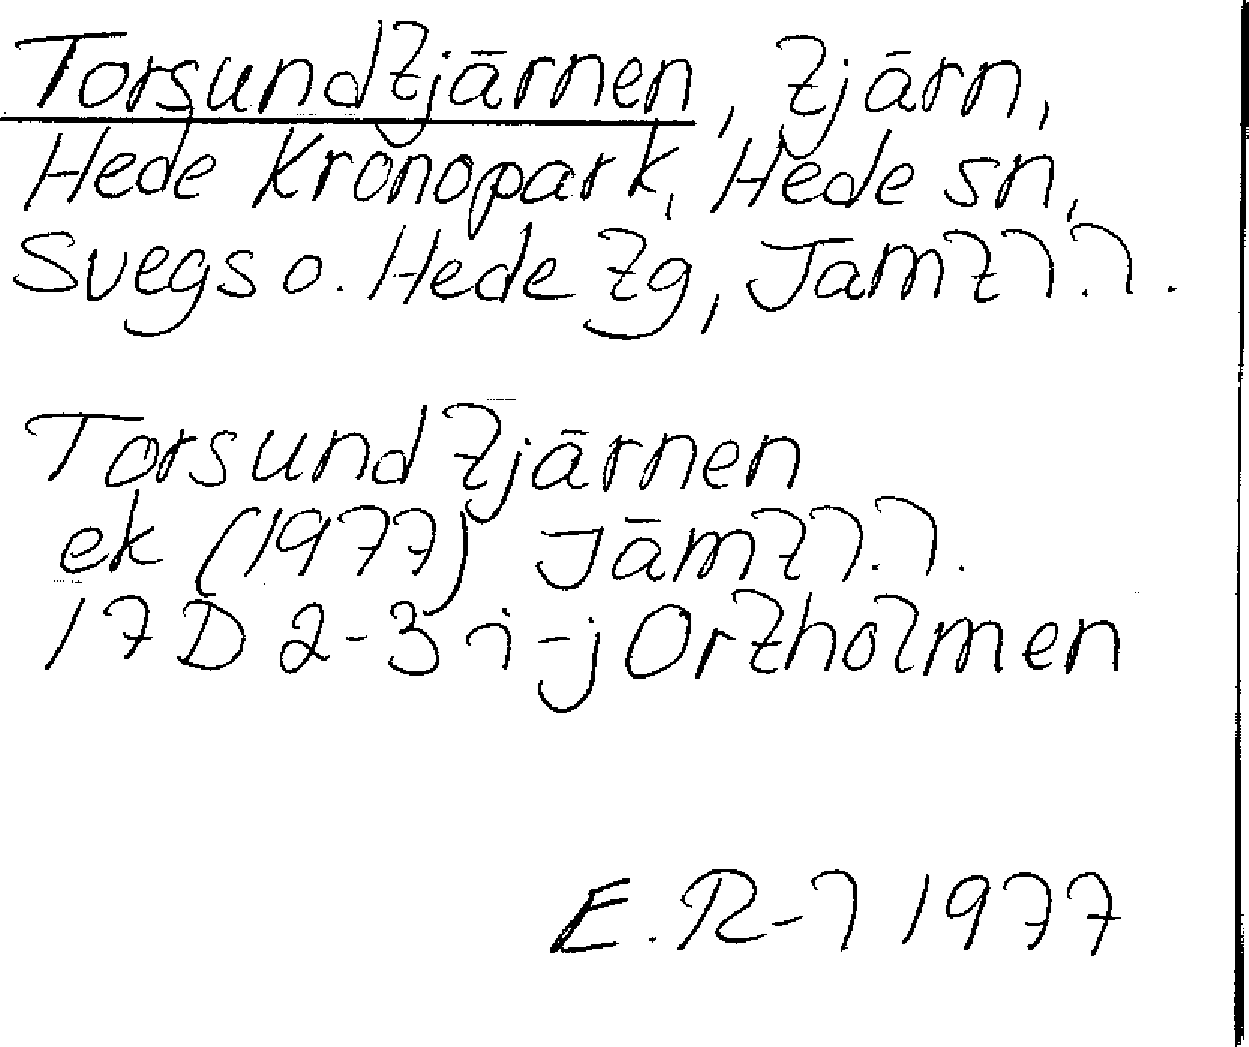 Torsundtjärnen, tjärn,
Hede Kronopark, Hede sn,
Svegs o. Hede tg, Jamtl.l.
Torsundtjärnen
ek (1977) Jämtl.l.
17D 2-3 i-j Ortholmen
E.R-l 1977